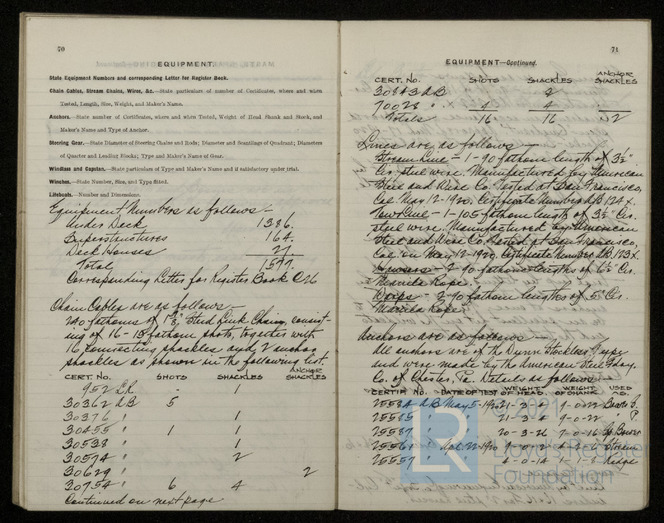 70
EQUIPMENT.
State Equipment Numbers and corresponding Letter for Register Book.
Chain Cables, Stream Chains, Wires, &c.—State particulars of number of Certificates, where and when
Tested, Length, Size, Weight, and Maker's Name.
Anchors.—State number of Certificates, where and when Tested, Weight of Head Shank and Stock, and
Maker's Name and Type of Anchor.
Steering Gear.—State Diameter of Steering Chains and Rods; Diameter and Scantlings of Quadrant; Diameters
of Quarter and Leading Blocks; Type and Maker's Name of Gear.
Windlass and Capstan.—State particulars of Type and Maker's Name and if satisfactory under trial.
Winches.—State Number, Size, and Type fitted.
Lifeboats.—Number and Dimensions.
Equipment Numbers as follows—
Under Deck 1386.
Superstructures 164.
Deck Houses 27
Total 1577.
Corresponding Letter for Register Book
Chain Cables are as follows—
240 fathoms of Stud Link Chain, consist
ing of 16-15 fathom shots, together with
16 connecting shackles and 2 anchor
shackles as shown in the following list.
CERT. NO. SHOTS SHACKLES ANCHOR SHACKLES
952 LR - 1
30362 AB 5
30376 " 1
30455 " 1 1
30538 " 1
30574 " 2
30629 " 2
30754 " 6 4
Continued on next page
71
EQUIPMENT—Continued.
CERT. NO. SHOTS SHACKLES ANCHOR SHACKLES
30843 AB 2
70028 " 4 4
Totals 16 16 2
Lines are as follows—
Stream Line — 1-90 fathom length of 3½"
Cir. steel wire. Manufactured by American
Steel and Wire Co. Tested at San Francisco,
Cal. May 12-1920. Certificate Number AB 124 X.
Tow Line — 1-105 fathom length of Cir.
steel wire. Manufactured by American
Steel and Wire Co. Tested at San Francisco,
Cal. on May 12-1920. Certificate Number AB 123 X.
Hawsers — 2-90 fathom lengths of Cir.
Manila Rope.
Warps — 2-90 fathom lengths of 5" Cir.
Manila Rope.
Anchors are as follows—
All anchors are of the Dunn Stockless Type
and were made by the American Steel Fdry.
Co. of Chester, Pa. Details as follows—
CERTIF. NO. DATE OF TEST WEIGHT OF HEAD. WEIGHT OF SHANK. USED AS.
25584 AB May 5-1920 9-0-22 Bower
25585 21-3-6 9-0-22 " P.
25587 20-3-26 Bower
Apl. 22-1920 Stream
25557 " Kedge
© 2021
LR
Lloyd's Register
Foundation